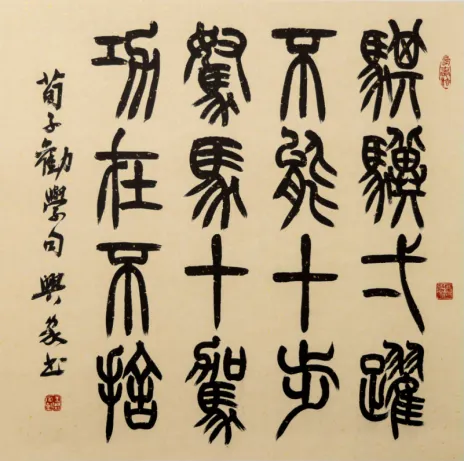 騏驥弌躍
不能十步
駑馬十駕
功在不捨
荀子勸學句興篆书